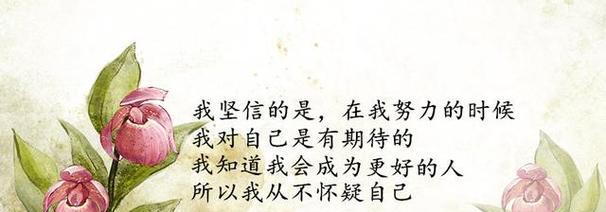 我坚信的是，在我努力的时候
我对自己是有期待的
我知道我会成为更好的人
所以我从不怀疑自己